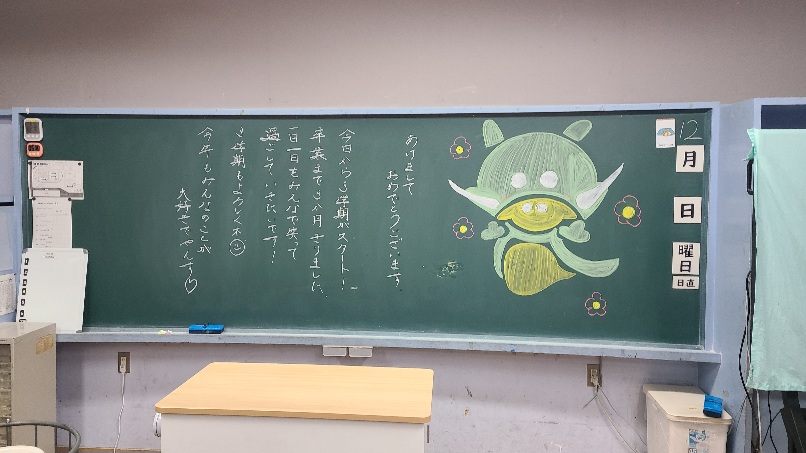 あけまして
おめでとうございます。
今日から3学期がスタート!
卒業まで3か月きりました。
一日一日をみんなで笑って
過ごしていきたいです!
3学期もよろしくネ
今年もみんなのことが
大好きでやんす♡
12
月
日
曜日
日直